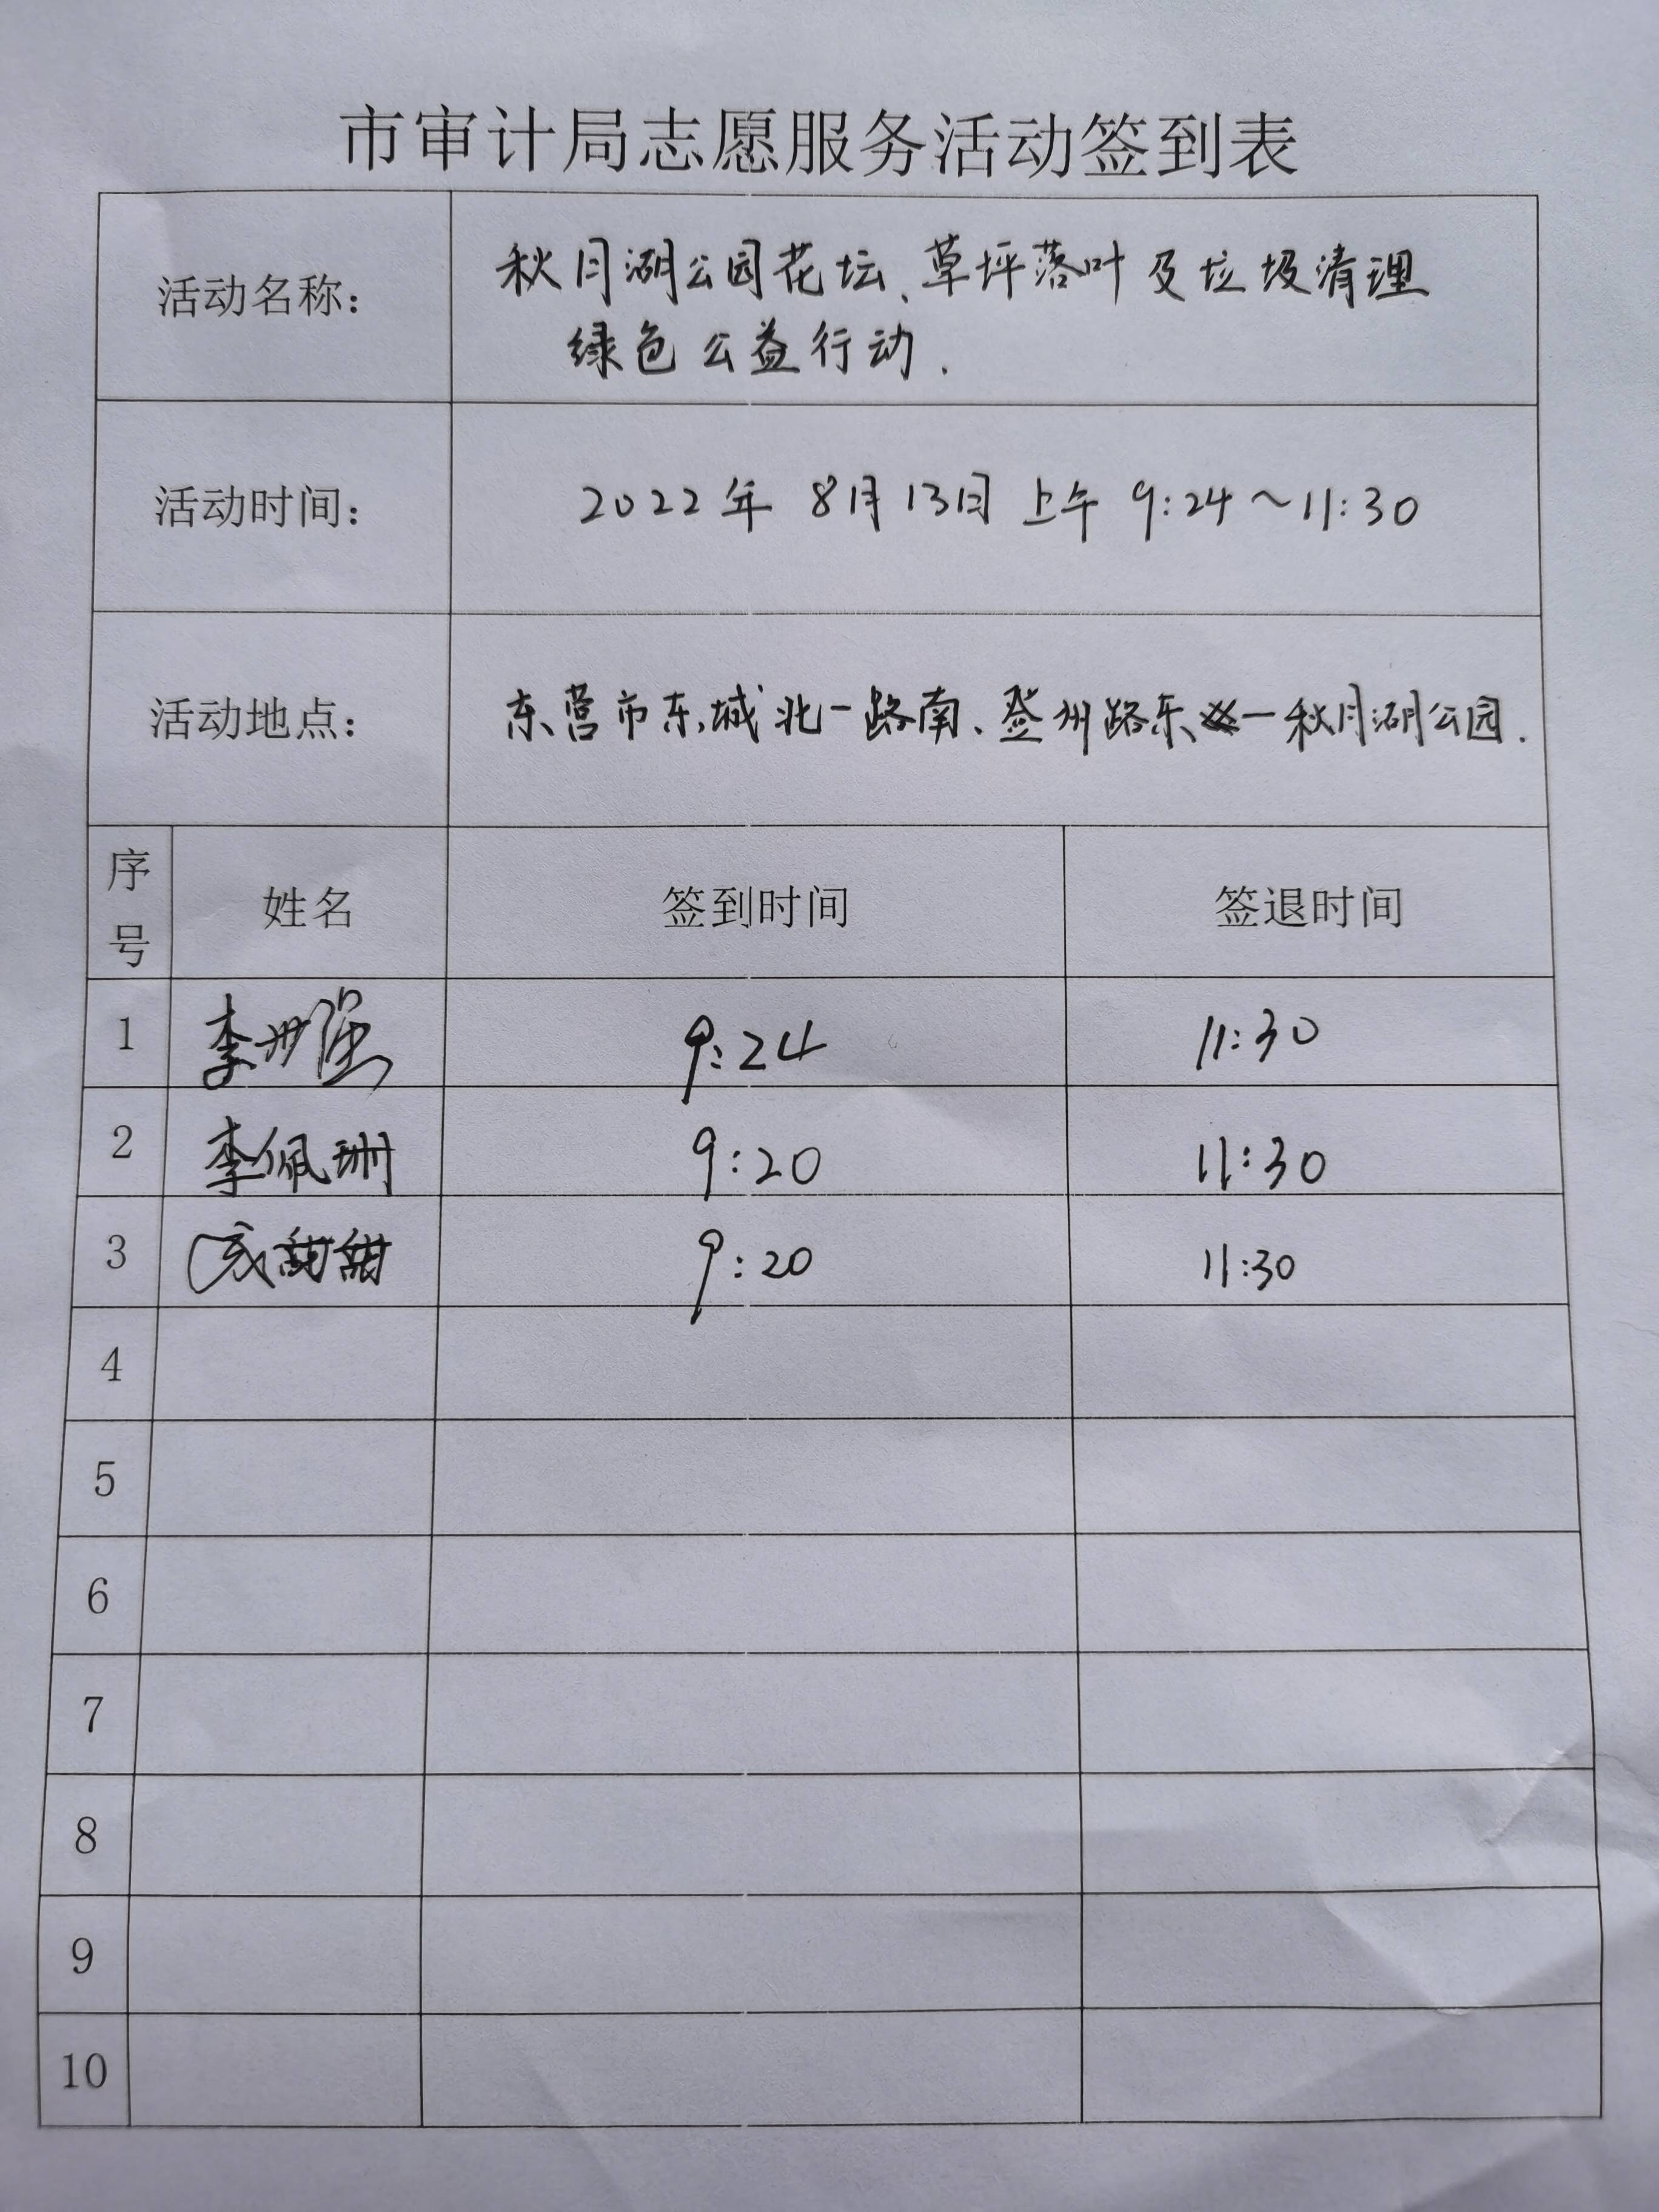 市审计局志愿服务活动签到表
活动名称：
秋月湖公园花坛、草坪落叶及垃圾清理
绿色公益行动.
活动时间：
2022年 8月13日 上午 9:24～11:30
活动地点：
东营市东城北一路南、登州路东一秋月湖公园.
序号 姓名 签到时间 签退时间
1 李 强 9:24 11:30
2 李佩珊 9:20 11:30
3 甜甜 9:20 11:30
4
5
6
7
8
9
10